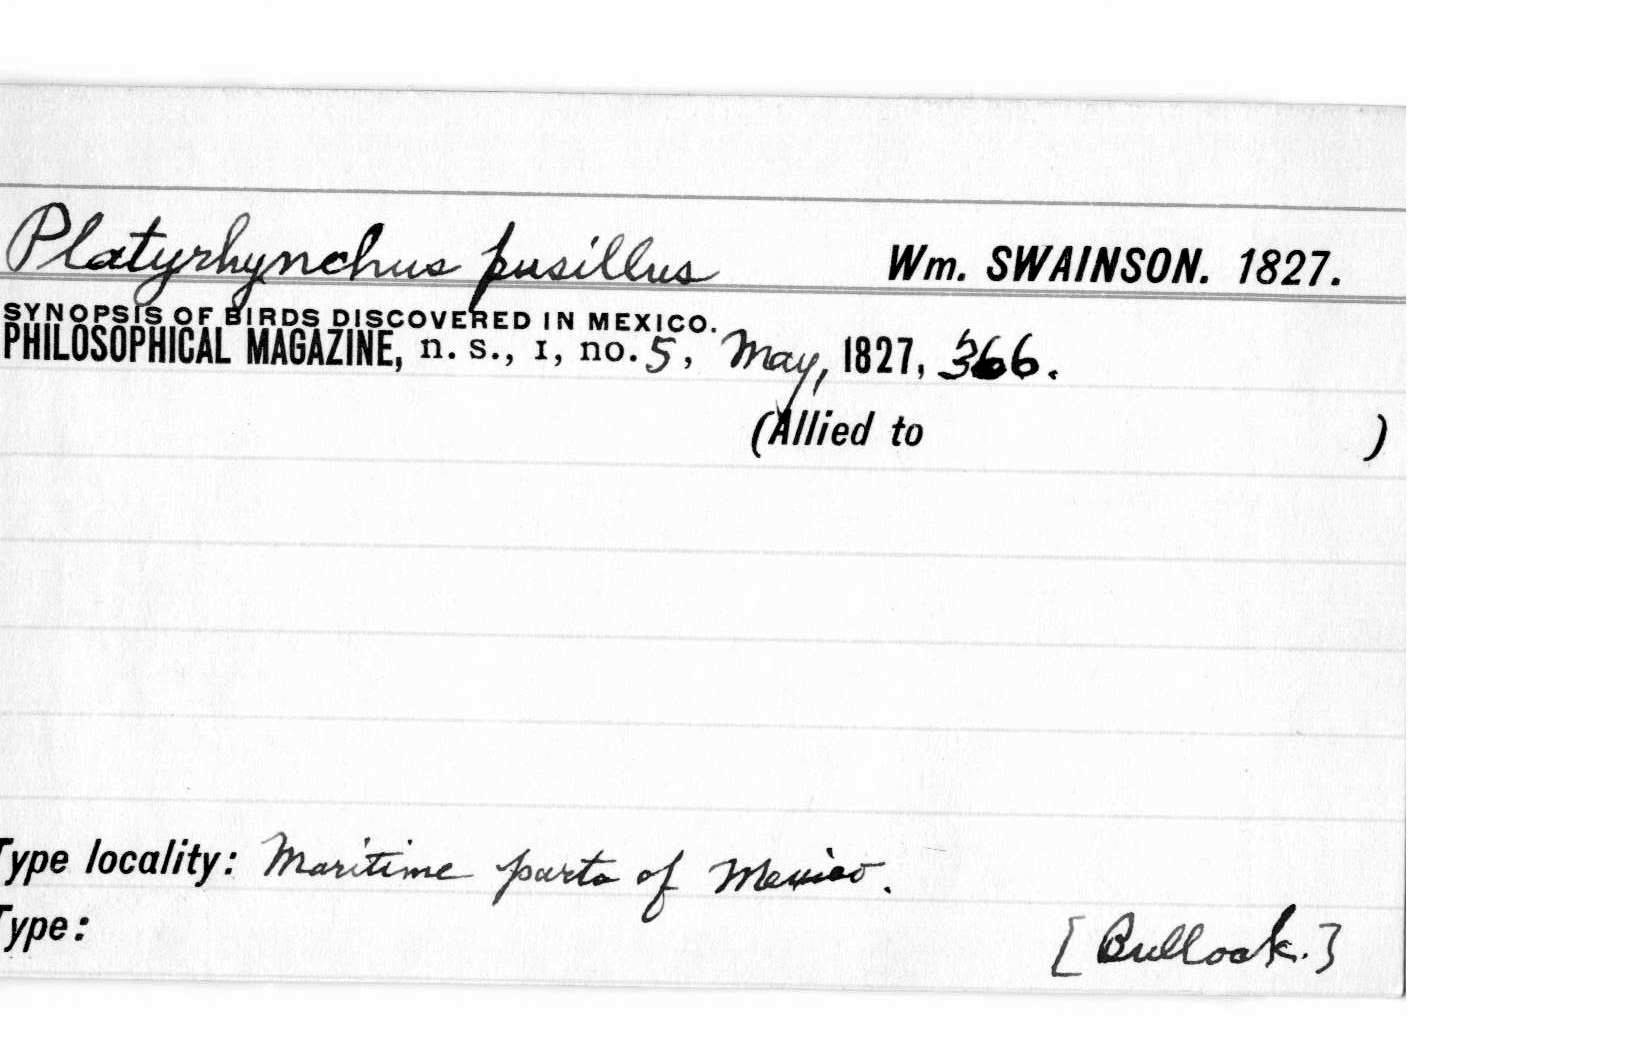 Platyrhynchus pusillus Wm. SWAINSON. 1827.
SYNOPSIS OF BIRDS DISCOVERED IN MEXICO.
PHILOSOPHICAL MAGAZINE, n. s., I, no. 5, May, 1827, 366.
(Allied to )
Type locality: Maritime parts of Mexico.
Type:
[Bullock.]